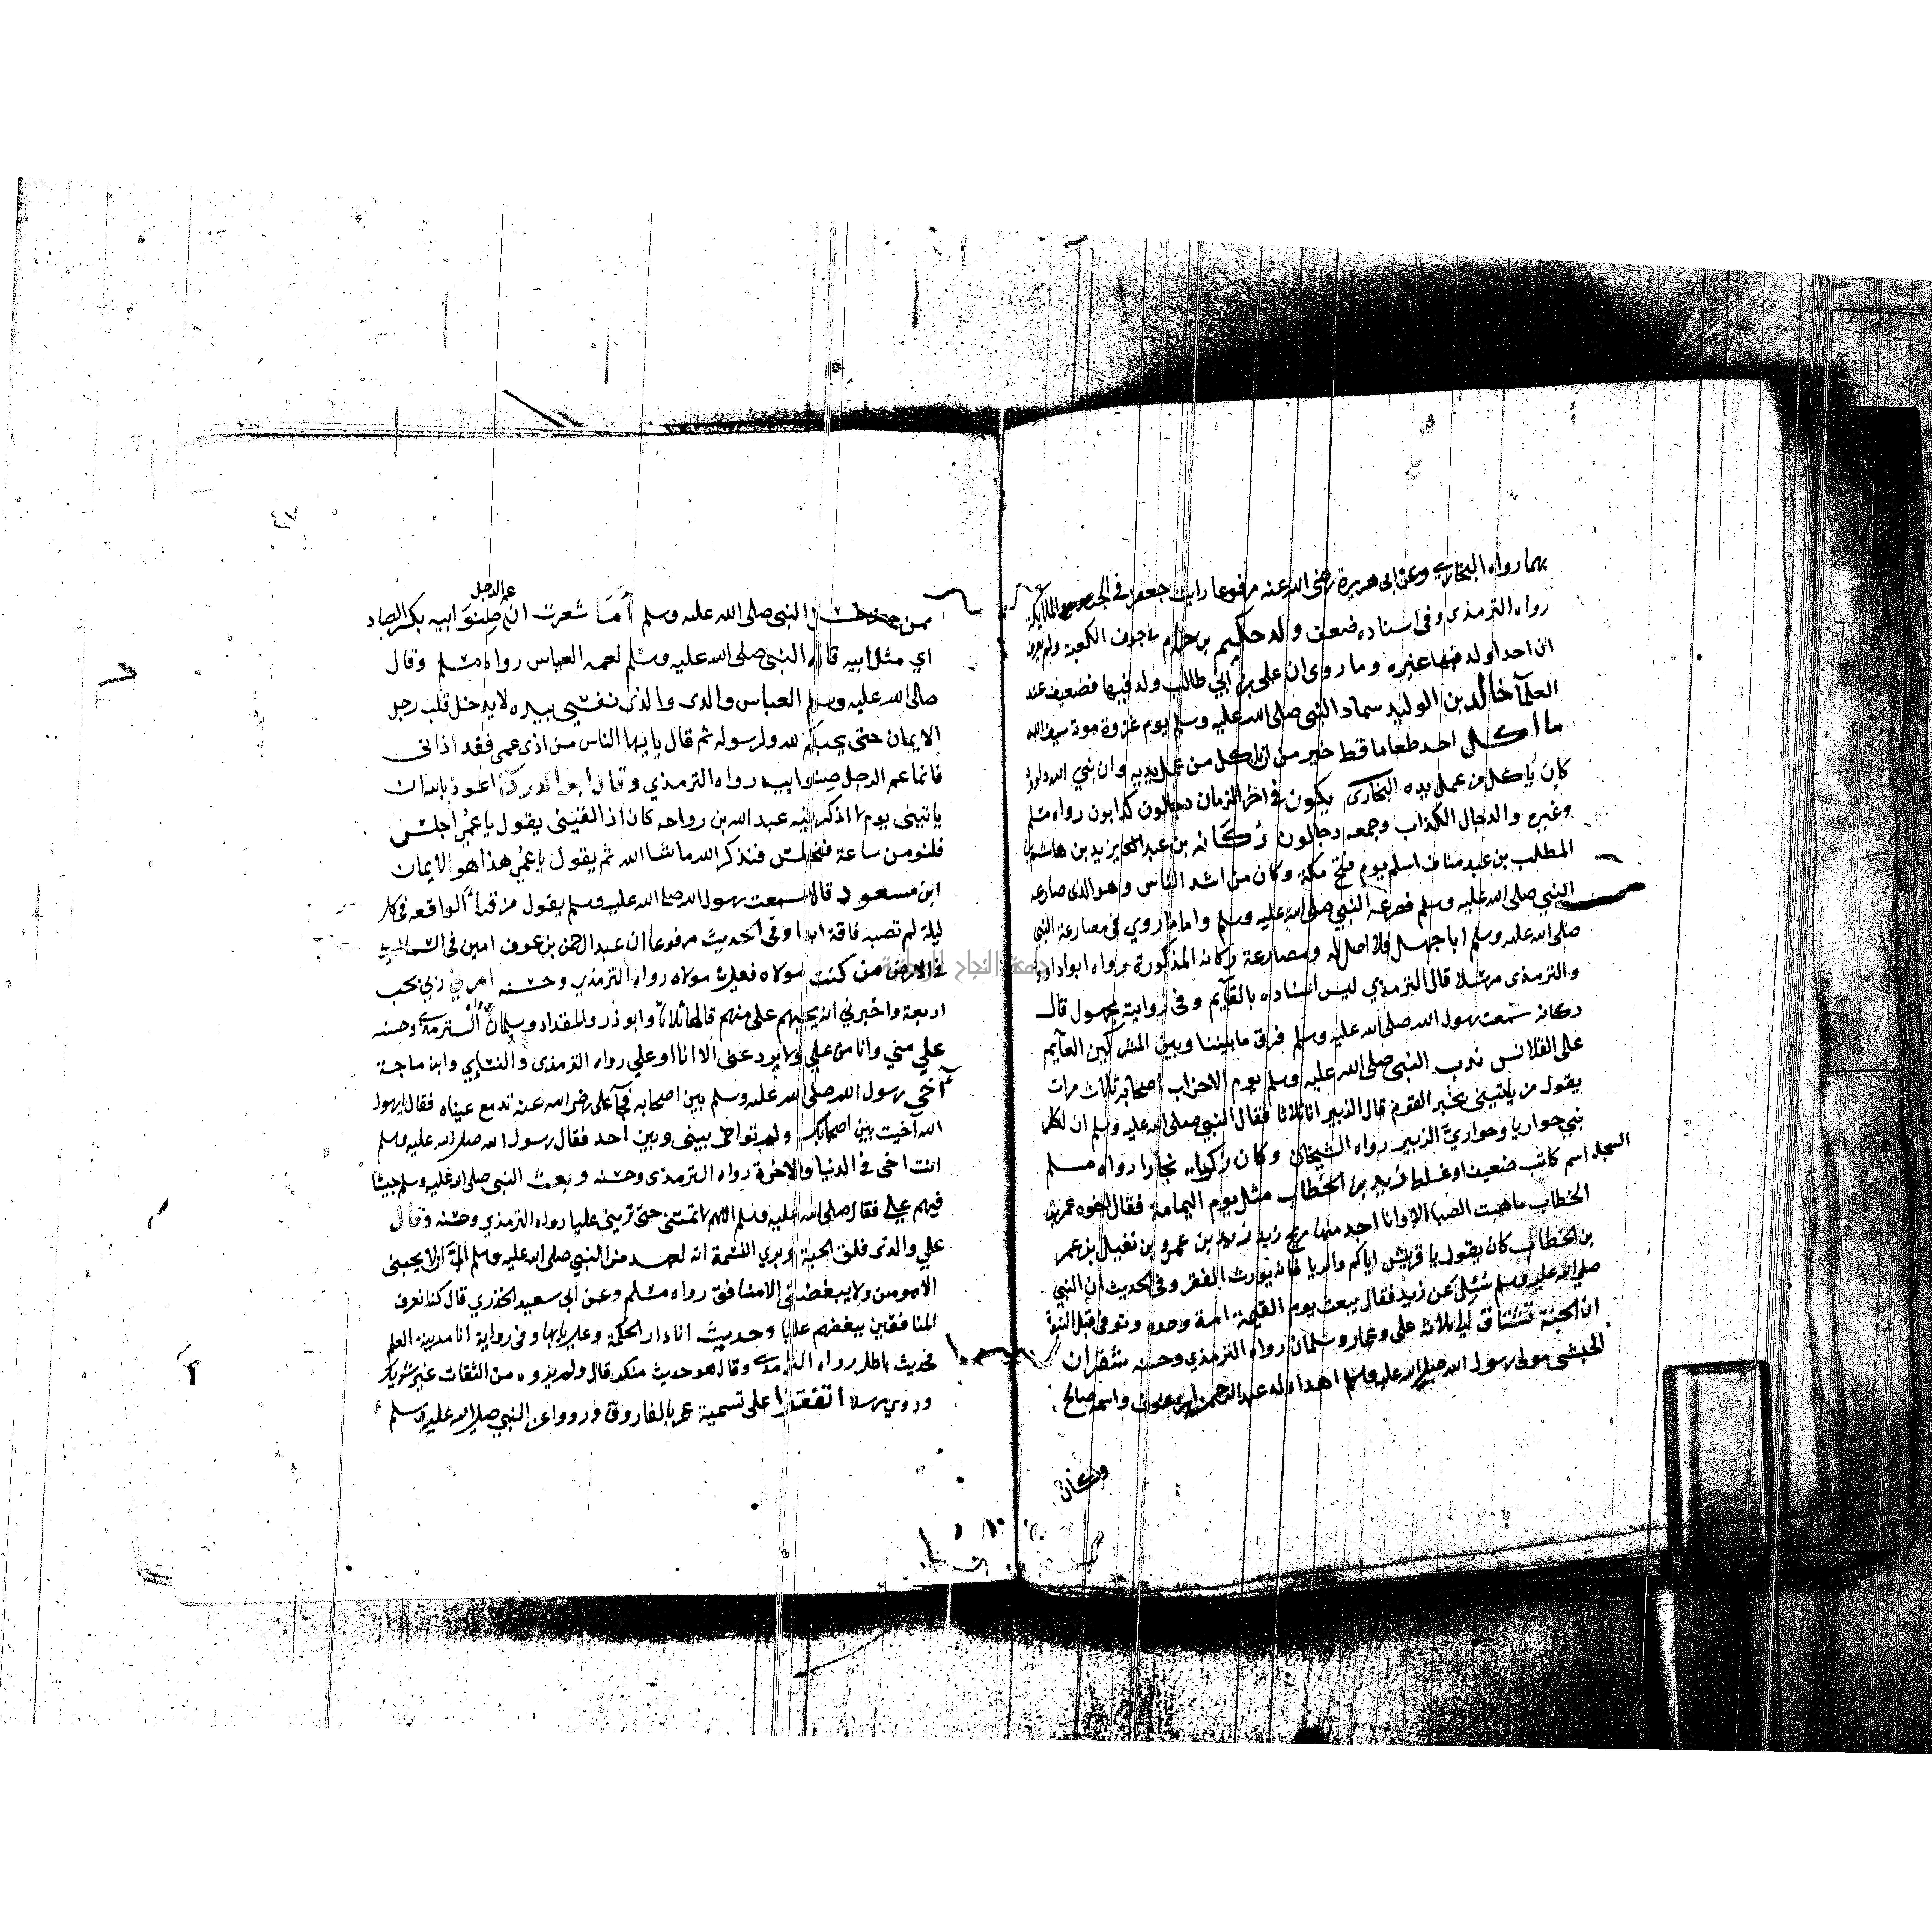 بهما رواه البخاري وعن ابى هريرة رضى الله عنه مرفوعا رايت جعفر فى الجنة مع الملايكة
رواه الترمذى وفى اسناده ضعف ولد حكيم بن حزام في جوف الكعبة ولم يعرف
ان احدا ولد فيها غيره وما روى ان على بن ابي طالب ولد فيها فضعيف عند
العلمآ خالد بن الوليد سماه النبى صلى الله عليه وسلم يوم غزوة موتة سيف الله
ما اكل احد طعاما قط خير من ان ياكل من عمل يديه وان نبي الله داود
كان ياكل من عمل يده البخارى يكون فى اخر الزمان دجالون كذابون رواه مسلم
وغيره والدجال الكذاب وجمعه دجالون ركانه بن عبد يزيد بن هاشم بن
المطلب بن عبد مناف اسلم يوم فتح مكة وكان من اشد الناس وهو الذى صارعه
النبي صلى الله عليه وسلم فصرعه النبي صلى الله عليه وسلم واما ما روي فى مصارعة النبي
صلى الله عليه وسلم ابا جهل فلا اصل له ومصارعة ركانه المذكورة رواه ابو داود
والترمذى مرسلا قال الترمذي ليس اسناده بالقآيم وفى رواية مجهول قال
ركانه سمعت رسول الله صلى الله عليه وسلم فرق ما بيننا وبين المشركين العمآيم
على القلانس ندب النبى صلى الله عليه وسلم يوم الاحزاب اصحابه ثلاث مرات
يقول من ياتينى بخبر القوم قال الزبير انا ثلاثا فقال النبي صلى الله عليه وسلم ان لكل
نبي حواريا وحواريّ الزبير رواه الشيخان وكان زكرياء نجارا رواه مسلم
السجل اسم كاتب ضعيف او غلط زيد بن الخطاب مثل يوم اليمامة فقال اخوه عمر بن
الخطاب ما هبت الصبا الا وانا اجد منها ريح زيد زيد بن عمرو بن نفيل بن عمر
بن الخطاب كان يقول يا قريش اياكم والربا فانه يورث الفقر وفى الحديث ان النبي
صلى الله عليه وسلم سئل عن زيد فقال يبعث يوم القيمة امة وحده وتوفى قبل النبوة
ان الجنة تشتاق الى ثلاثة على وعمار وسلمان رواه الترمذي وحسنه شقران
الحبشى مولى رسول الله صلى الله عليه وسلم اهداه له عبد الرحمن بن عوف واسمه صالح
وكان
٤٧
ممن النبي صلى الله عليه وسلم أمَا شعرت ان عم الرجل صِنْوَ ابيه بكسر الصاد
اي مثل ابيه قاله النبى صلى الله عليه وسلم لعمه العباس رواه مسلم وقال
صلى الله عليه وسلم العباس والدى والذى نفسي بيده لا يدخل قلب رجل
الايمان حتى يحبكم لله ولرسوله ثم قال يايها الناس من اذى عمى فقد اذانى
فانما عم الرجل صنو ابيه رواه الترمذي وقال ابو الدرداء اعوذ بالله ان
ياتيني يوم لا اذكر فيه عبد الله بن رواحه كان اذا لقيني يقول يا عويمر اجلس
فلنومن ساعة فنجلس فنذكر الله ما شا الله ثم يقول يا عويمر هذا هو الايمان
ابن مسعود قال سمعت رسول الله صلى الله عليه وسلم يقول من قرا الواقعه فى كل
ليلة لم تصبه فاقة ابدا وفى الحديث مرفوعا ان عبد الرحمن بن عوف امين فى السما امين
فى الارض من كنت مولاه فعلي مولاه رواه الترمذي وحسنه امرني ربي بحب
اربعة واخبرني انه يحبهم على منهم قالها ثلاثا وابو ذر والمقداد وسلمان رواه الترمذي وحسنه
علي مني وانا من علي ولا يودى عنى الا انا او علي رواه الترمذى والنسايي وابن ماجة
آخى رسول الله صلى الله عليه وسلم بين اصحابه فجآ على رضى الله عنه تدمع عيناه فقال يا رسول
الله آخيت بين اصحابك ولم تواخ بينى وبين احد فقال رسول الله صلى الله عليه وسلم
انت اخى فى الدنيا والاخرة رواه الترمذى وحسنه وبعث النبى صلى الله عليه وسلم جيشا
فيهم علي فقال صلى الله عليه وسلم اللهم لا تمتنى حتى ترينى عليا رواه الترمذي وحسنه وقال
علي والذى فلق الحبة وبرى النسمة انه لعهد من النبي صلى الله عليه وسلم اليّ ان لا يحبنى
الا مومن ولا يبغضنى الا منافق رواه مسلم وعن ابي سعيد الخدري قال كنا نعرف
المنافقين ببغضهم عليا وحديث انا دار الحكمة وعلي بابها وفى رواية انا مدينة العلم
فحديث باطل رواه الترمذي وقال هو حديث منكر قال ولم يروه من الثقات غير شريك
وروي مرسلا اتفقوا على تسمية عمر بالفاروق ورووا عن النبي صلى الله عليه وسلم